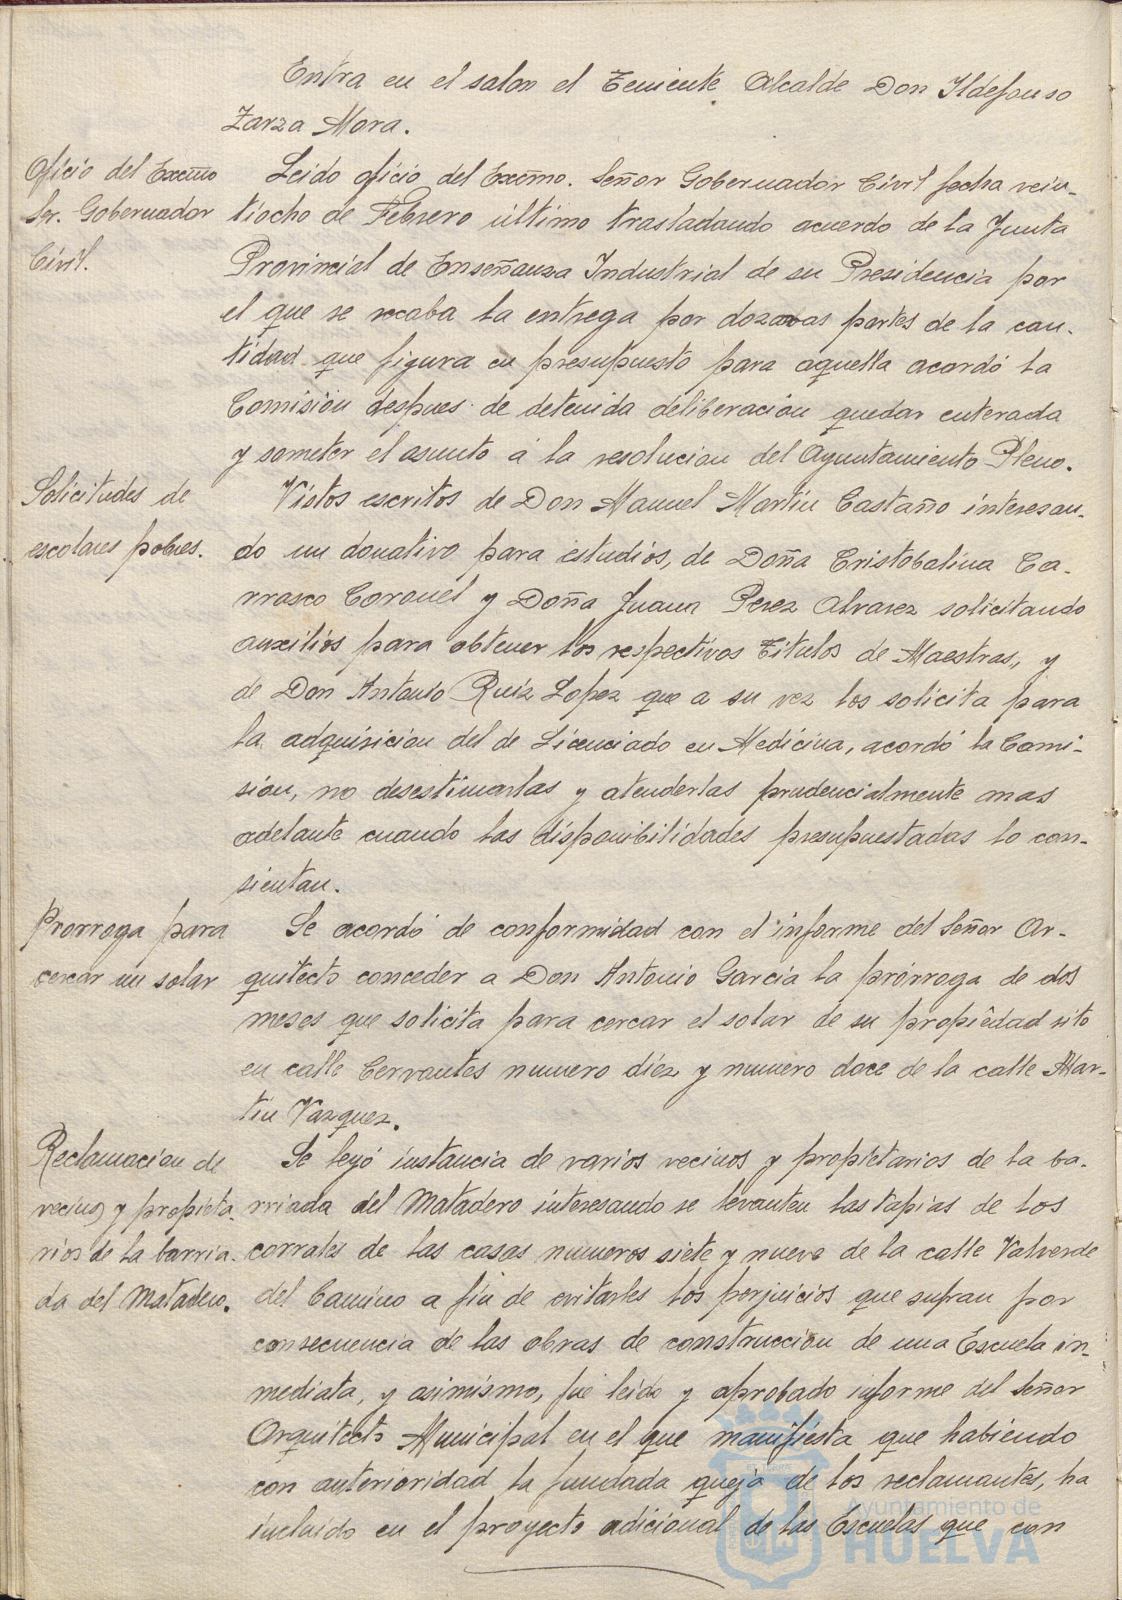 Entra en el salon el Teniente Alcalde Don Ildefonso
Zarza Mora.
Oficio del Excmo
Sr. Gobernador
Civil.
Leido oficio del Excmo. Señor Gobernador Civil fecha vein-
tiocho de Febrero último trasladando acuerdo de la Junta
Provincial de Enseñanza Industrial de su Presidencia por
el que se recaba la entrega por dozavas partes de la can-
tidad que figura en presupuesto para aquella acordó la
Comision despues de detenida deliberacion quedar enterada
y someter el asunto á la resolucion del Ayuntamiento Pleno.
Solicitudes de
escolares pobres.
Vistos escritos de Don Manuel Martin Castaño interesan-
do un donativo para estudios, de Doña Cristobalina Ca-
rrasco Coronel y Doña Juana Perez Alvarez solicitando
auxilios para obtener los respectivos Titulos de Maestras, y
de Don Antonio Ruiz Lopez que a su vez los solicita para
la adquisicion del de Licenciado en Medicina, acordó la Comi-
sion, no desestimarlas y atenderlas prudencialmente mas
adelante cuando las disponibilidades presupuestadas lo con-
sientan.
Prorroga para
cercar un solar
Se acordó de conformidad con el informe del Señor Ar-
quitecto conceder a Don Antonio Garcia la prórroga de dos
meses que solicita para cercar el solar de su propiedad sito
en calle Cervantes numero diez y numero doce de la calle Mar-
tin Vazquez.
Reclamacion de
vecinos y propieta-
rios de la barria-
da del Matadero.
Se leyó instancia de varios vecinos y propietarios de la ba-
rriada del Matadero interesando se levanten las tapias de los
corrales de las casas numeros siete y nueve de la calle Valverde
del Camino a fin de evitarles los perjuicios que sufran por
consecuencia de las obras de construccion de una Escuela in-
mediata, y asimismo, fue leido y aprobado informe del Señor
Arquitecto Municipal en el que manifiesta que habiendo
con anterioridad la fundada queja de los reclamantes, ha
incluido en el proyecto adicional de las Escuelas que con
Ayuntamiento de
HUELVA